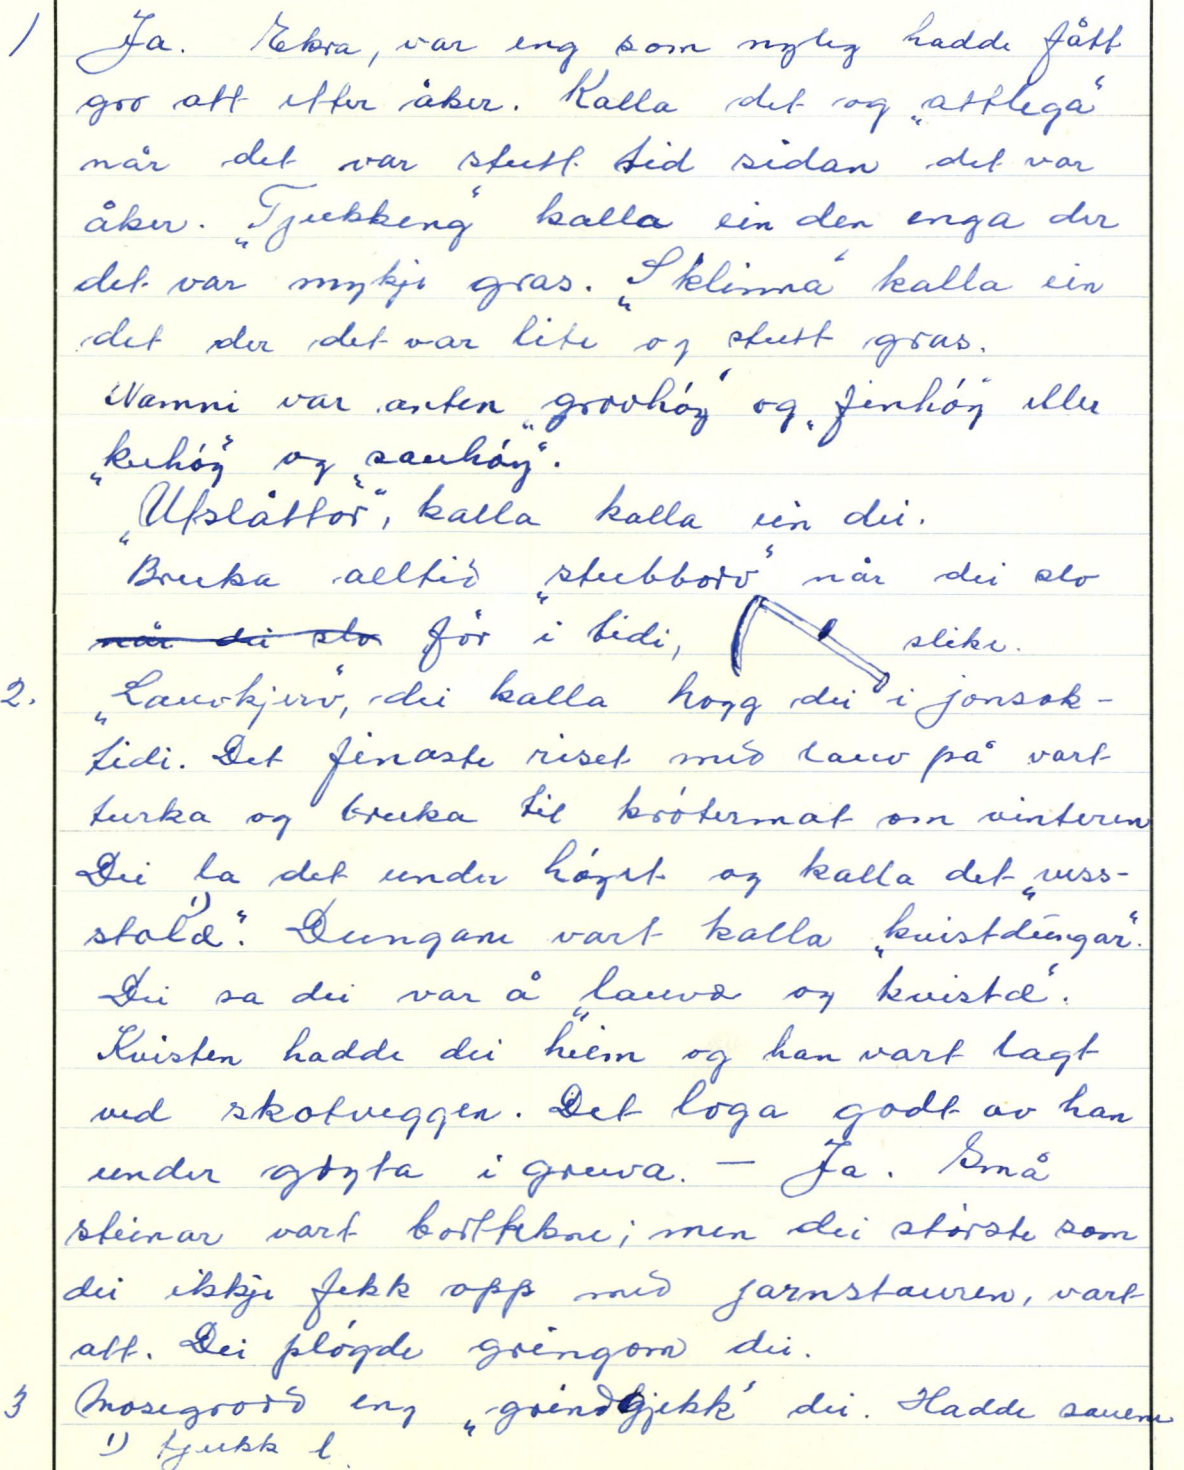 1) Ja. Ekra, var eng som nyleg hadde fått
gro att etter åker. Kalla det og „attlega"
når det var stutt tid sidan det var
åker. „Tjukkeng" kalla ein den enga der
det var mykje gras. „Sklinna" kalla ein
det der det var lite og stutt gras.
Namni var anten „grovhóy" og „finhóy" eller
„kuhóy" og „sauhóy".
„Utslåttor", kalla kalla ein dei.
Bruka alltid „stubborv" når dei slo
når dei slo fór i tidi, slike.
2. „Lauvkjerv", dei kalla hogg dei i jonsok-
tidi. Det finaste riset med lauv på vart
turka og bruka til krótermat om vinteren
Dei la det under hóyet og kalla det „vess-
stolæ"1). Dungane vart kalla „kvistdúngar".
Dei sa dei var å „lauva og kvistæ".
Kvisten hadde dei heim og han vart lagt
ved skotveggen. Det loga godt av han
under gryta i gruva. — Ja. Små
steinar vart borttekne; men dei stórste som
dei ikkje fekk opp med jarnstauren, vart
att. Dei plógde gringom dei.
3 Mosegrodd eng „grindgjekk" dei. Hadde sauene
1) tjukk l.